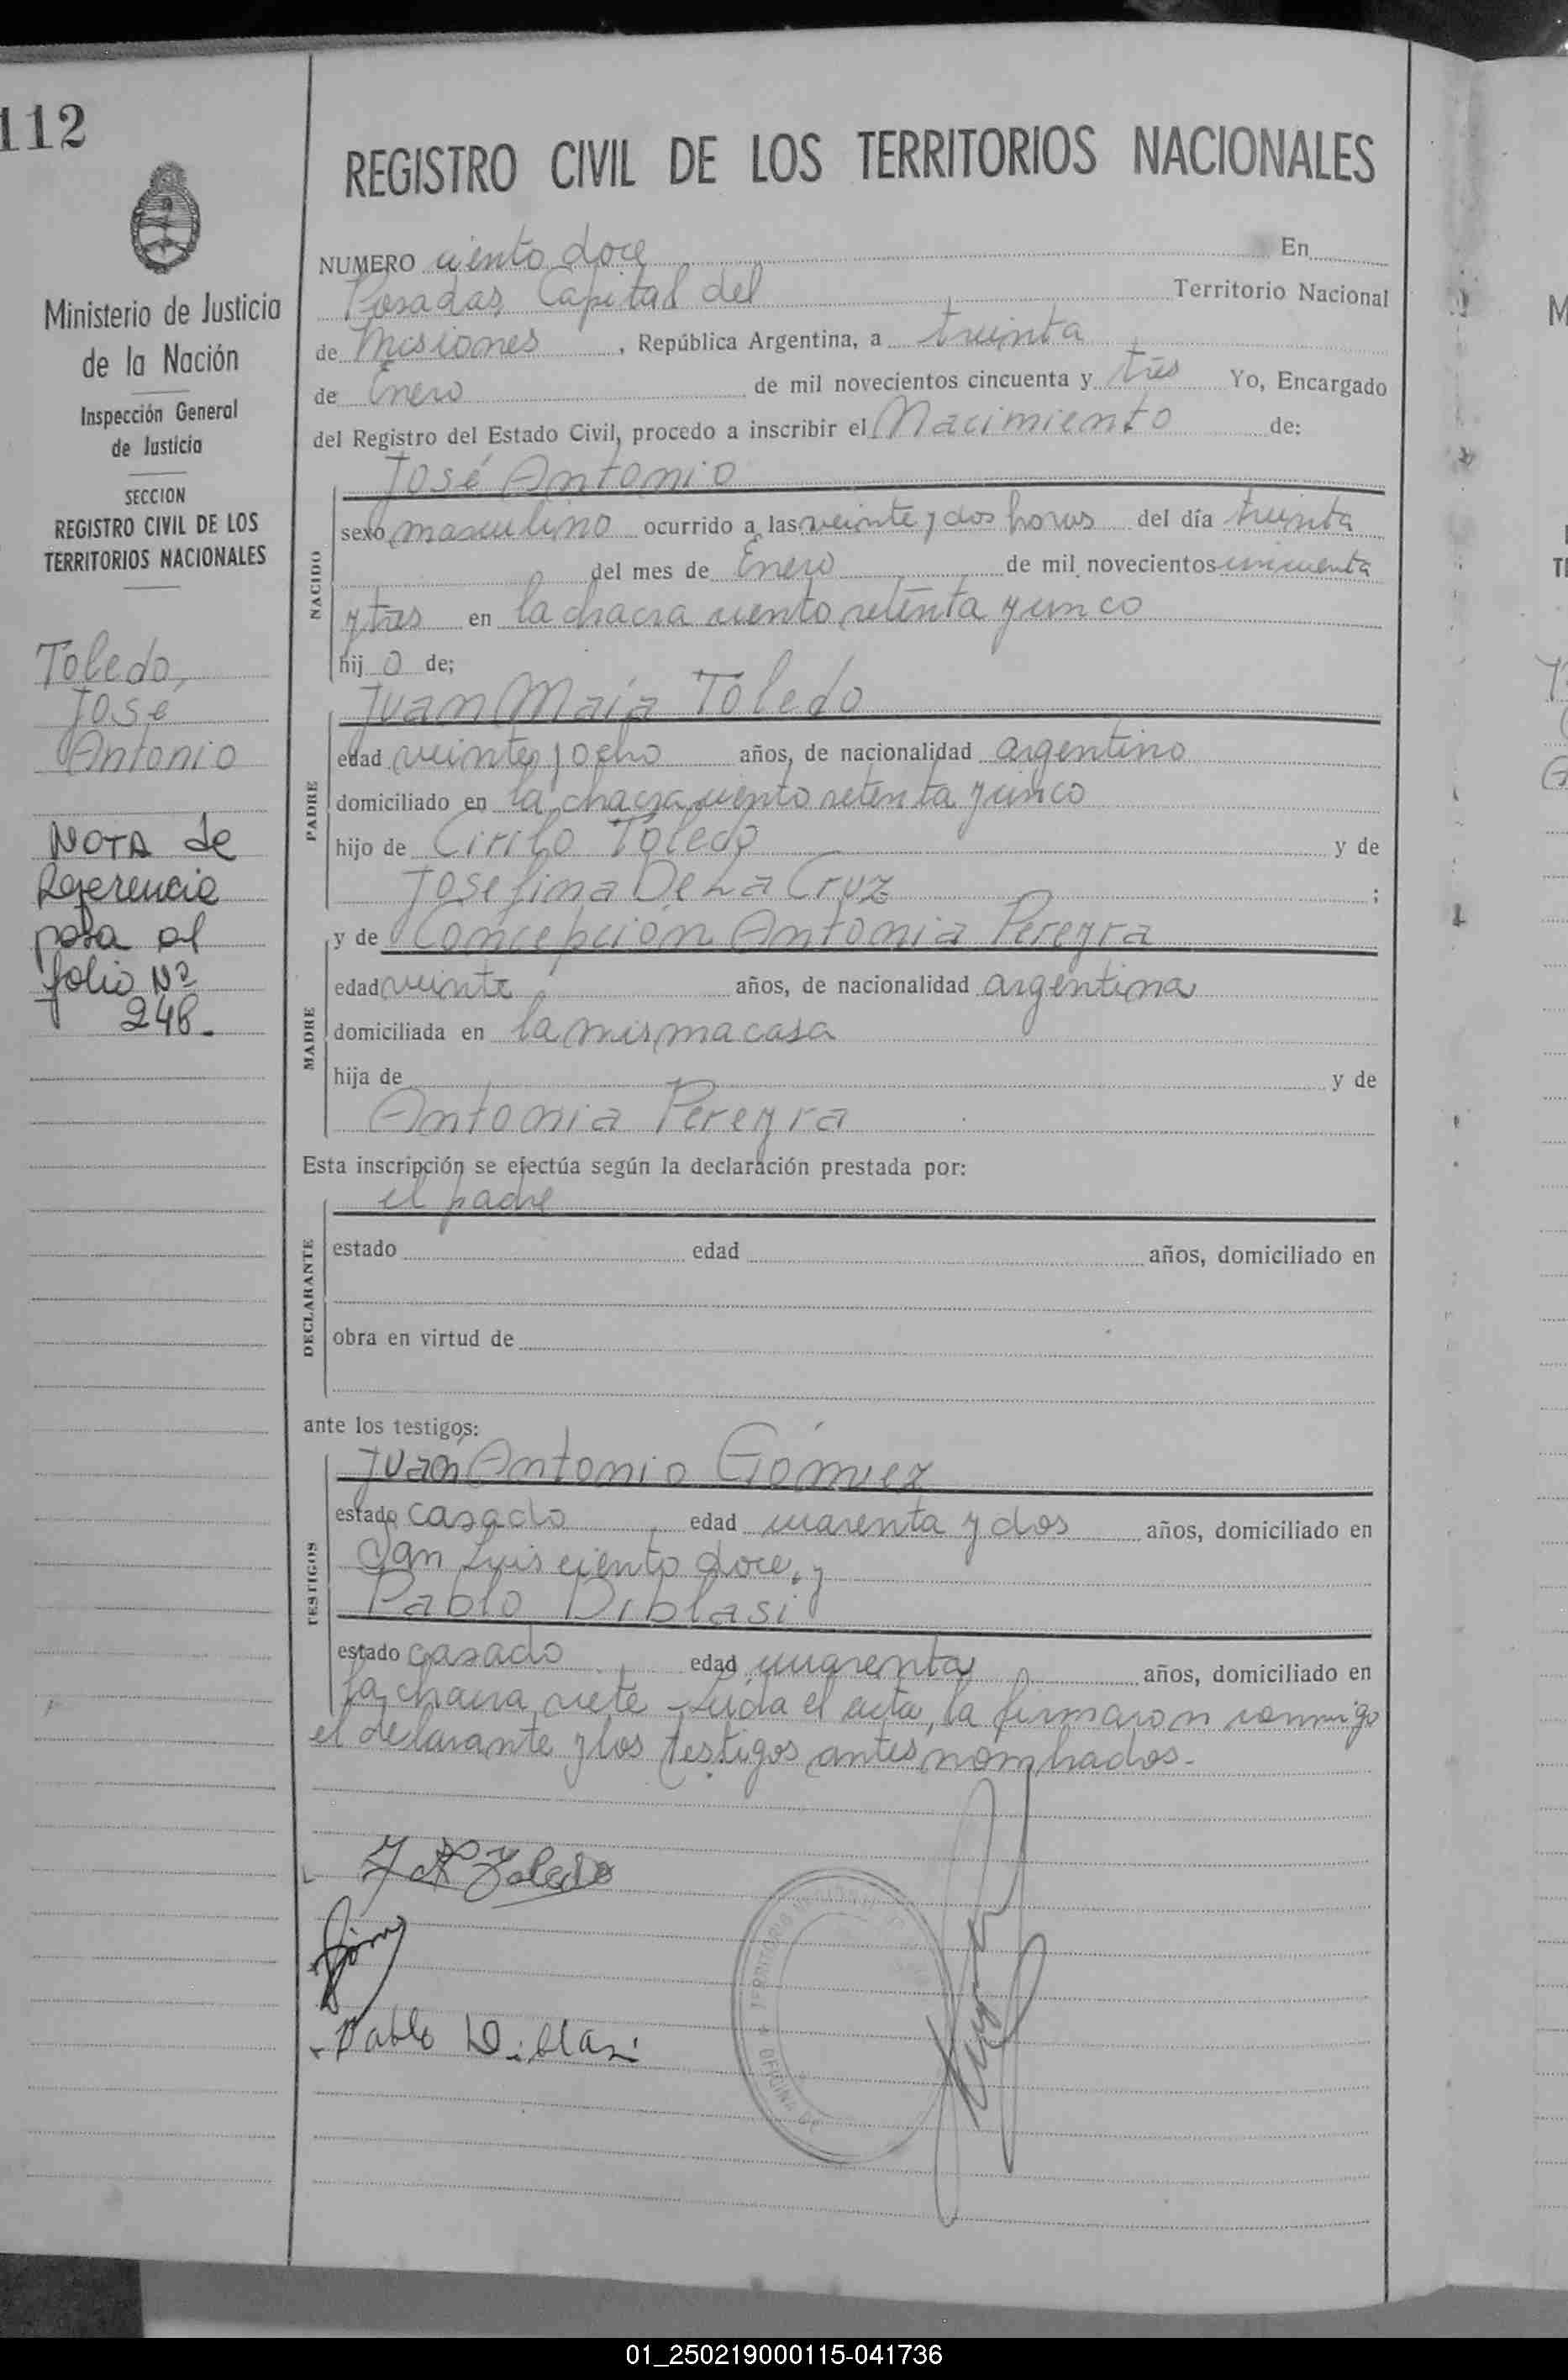 112
Ministerio de Justicia
de la Nación
Inspección General
de Justicia
SECCION
REGISTRO CIVIL DE LOS
TERRITORIOS NACIONALES
Toledo,
José
Antonio
NOTA de
Referencia
pasa al
folio Nº
248.
REGISTRO CIVIL DE LOS TERRITORIOS NACIONALES
NUMERO ciento doce En
Posadas, Capital del Territorio Nacional
de Misiones, República Argentina, a treinta
de Enero de mil novecientos cincuenta y tres Yo, Encargado
del Registro del Estado Civil, procedo a inscribir el Nacimiento de:
José Antonio
NACIDO
sexo masculino ocurrido a las veinte y dos horas del día treinta
del mes de Enero de mil novecientos cincuenta
y tres en la chacra ciento setenta y cinco
hijo de;
Juan María Toledo
PADRE
edad veinte y ocho años, de nacionalidad argentino
domiciliado en la chacra ciento setenta y cinco
hijo de Cirilo Toledo y de
Josefina De La Cruz ;
y de Concepción Antonia Pereyra
MADRE
edad veinte años, de nacionalidad argentina
domiciliada en la misma casa
hija de y de
Antonia Pereyra
Esta inscripción se efectúa según la declaración prestada por:
el padre
DECLARANTE
estado edad años, domiciliado en
obra en virtud de
ante los testigos:
Juan Antonio Gómez
TESTIGOS
estado casado, edad cuarenta y dos años, domiciliado en
San Luis ciento doce, y
Pablo Diblasi
estado casado edad cuarenta años, domiciliado en
la chacra siete - Leída el acta, la firmaron conmigo
el declarante y los testigos antes nombrados.-
J M Toledo
Pablo Diblasi
TERRITORIO
OFICINA DE
01_250219000115-041736